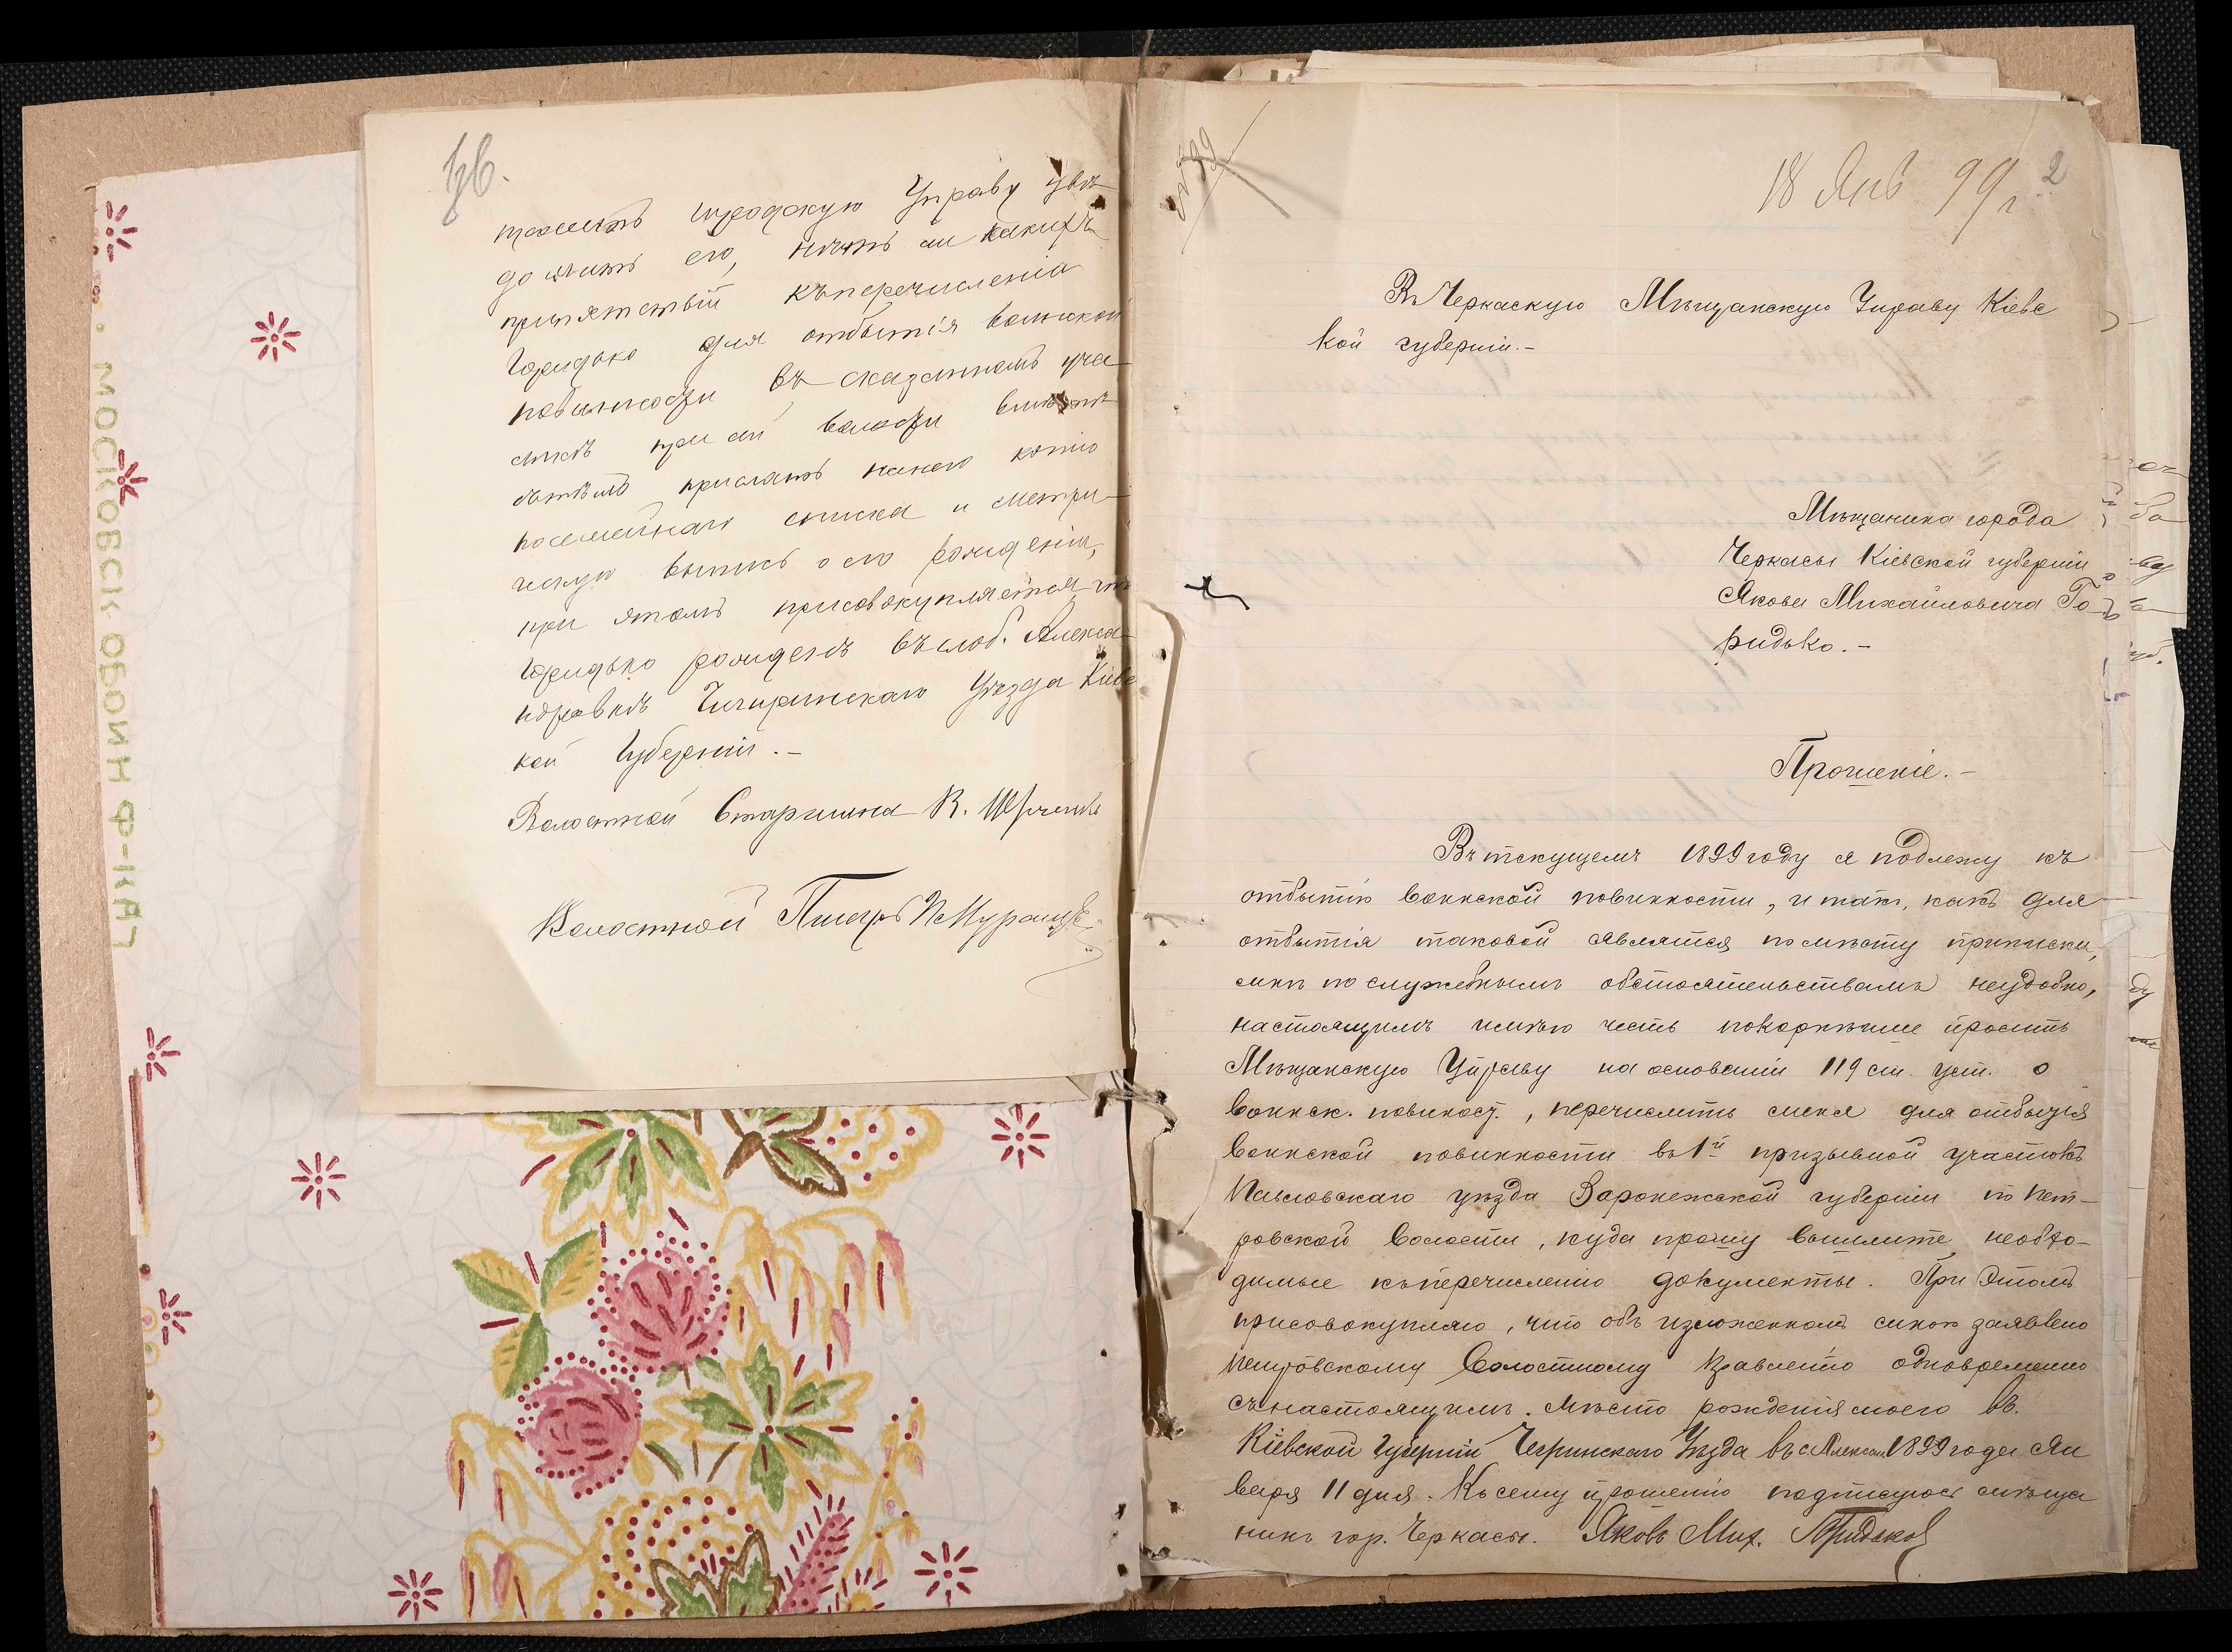 1об.
тожить городскую Управу увѣ
домить его, нѣтъ ли какихъ
припятствій къ перечисленію
Горидько для отбытія воинской
повинности въ сказанномъ уча
сткѣ при сей волости
прислать копію
посемейнаго списка и метри
ческую выпись о его рожденіи,
при этомъ присовокупляется что
Горидько рожденъ въ слоб. Алекса
ндровкѣ Чигиринскаго Уѣзда Кіевс
кой Губерніи.-
Волостной Старшина К.
Волостной Писарь
МОСКОВСК ОБОЙН Ф-КА
18 Янв 99 г. 2
Въ Черкаскую Мѣщанскую Управу Кіевс
кой губерніи.-
Мѣщанина города
Черкасы Кіевской губерніи
Якова Михайловича Го
ридько.-
Прошеніе.-
Въ текущемъ 1899 году я подлежу къ
отбытію воинской повинности, и такъ, какъ для
отбытія таковой являтся по мѣсту приписки,
мнѣ по служебнымъ обстоятельствамъ неудобно,
настоящимъ имѣю честь покорнѣише просить
Мѣщанскую Управу на основаніи 119 ст. уст. о
воинск. повиност., перечислить меня для отбытія
воинской повинности въ 1й призывной участокъ
Павловскаго уѣзда Воронежской губерніи по Пет-
ровской волости, куда прошу вышлите необхо-
димые къ перечисленію документы. При этомъ
присовокупляю, что объ изложенномъ мною заявлено
Петровскому Волостному Правленію одновременно
съ настоящимъ. Мѣсто рожденія моего въ.
Кіевской Губерніи Чегринскаго Уѣзда въ с Алексан. 1899 года Ян
варя 11 дня. Къ сему прошенію подписуюсь мѣща
нинъ гор. Черкасы. Яковъ Мих. Горидько